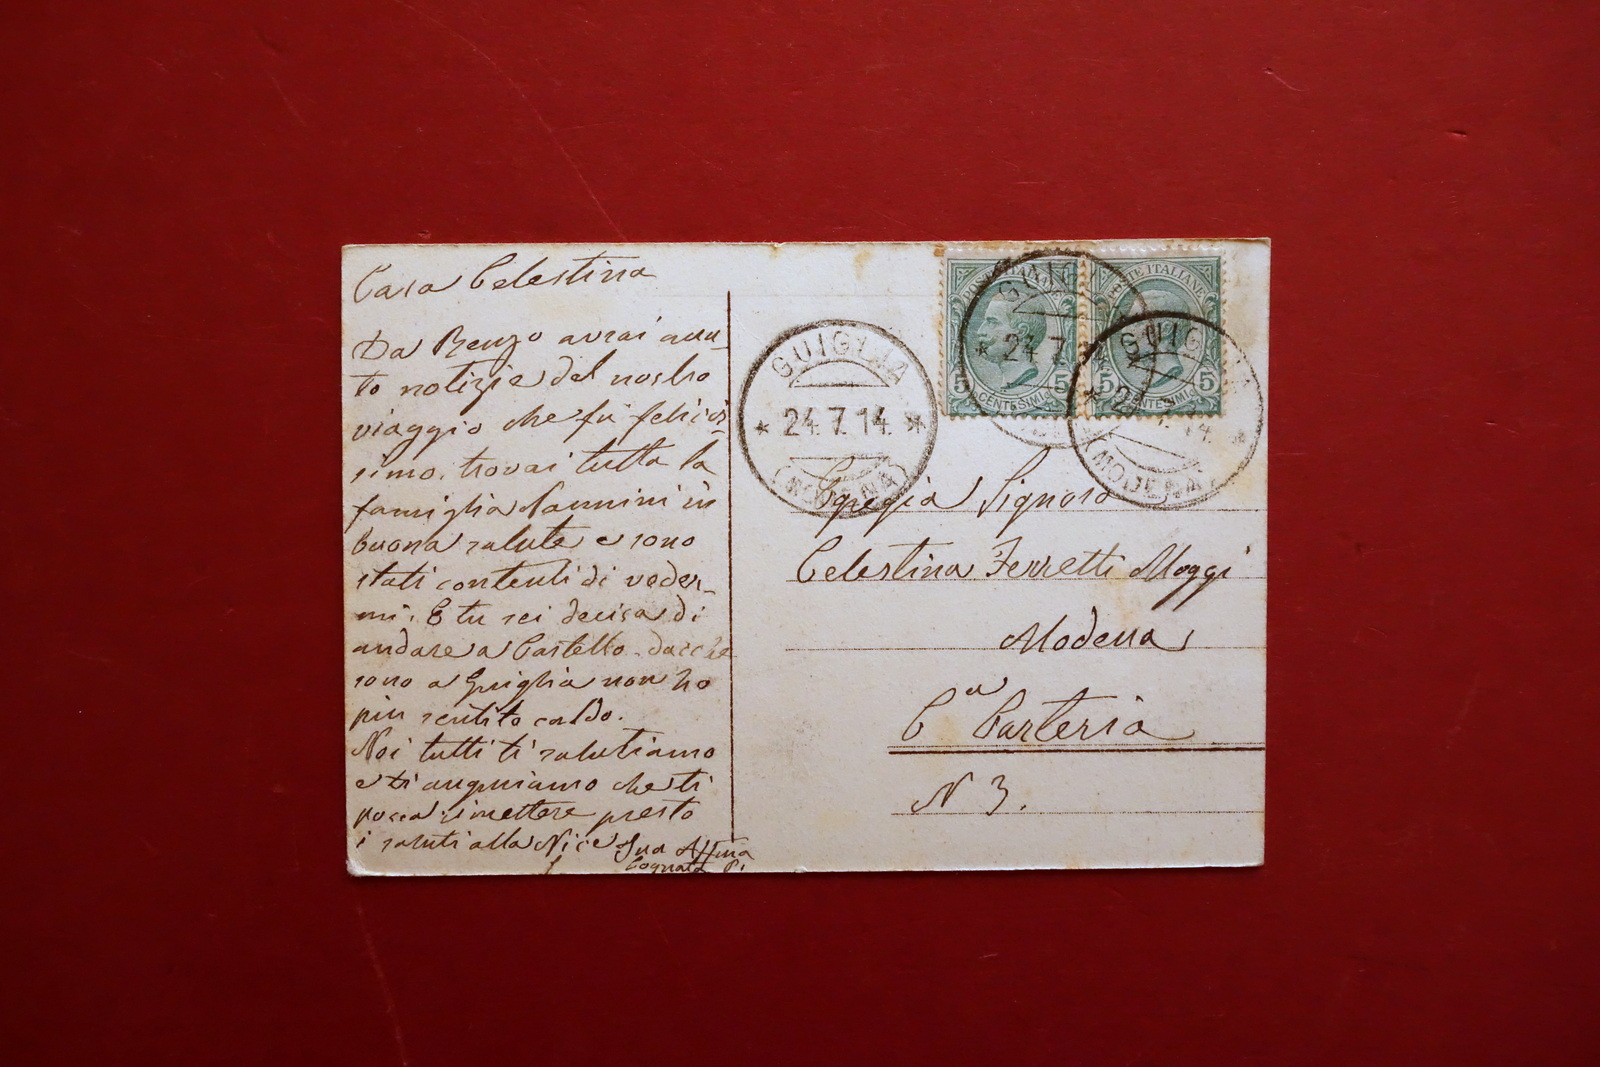 Cara Celestina
Da Renzo avrai avu-
to notizie del nostro
viaggio che fù felicis-
simo. trovai tutta la
famiglia Nannini in
buona salute e sono
stati contenti di veder-
mi. E tu sei decisa di
andare a Castello. dacche
sono a Guiglia non ho
più sentito caldo.
Noi tutti ti salutiamo
e ti auguriamo che ti
possa rimettere presto
i saluti alla Nice Sua Aff.ma
Cognata
GUIGLIA
24.7.14.
(MODENA)
POSTE ITALIANE
5 5
CENTESIMI
GUIGLIA
24.7.
POSTE ITALIANE
5 5
CENTESIMI
GUIGLIA
24.7.14.
(MODENA)
Egregia Signora
Celestina Ferretti Moggi
Modena
Ca Carteria
N 3.